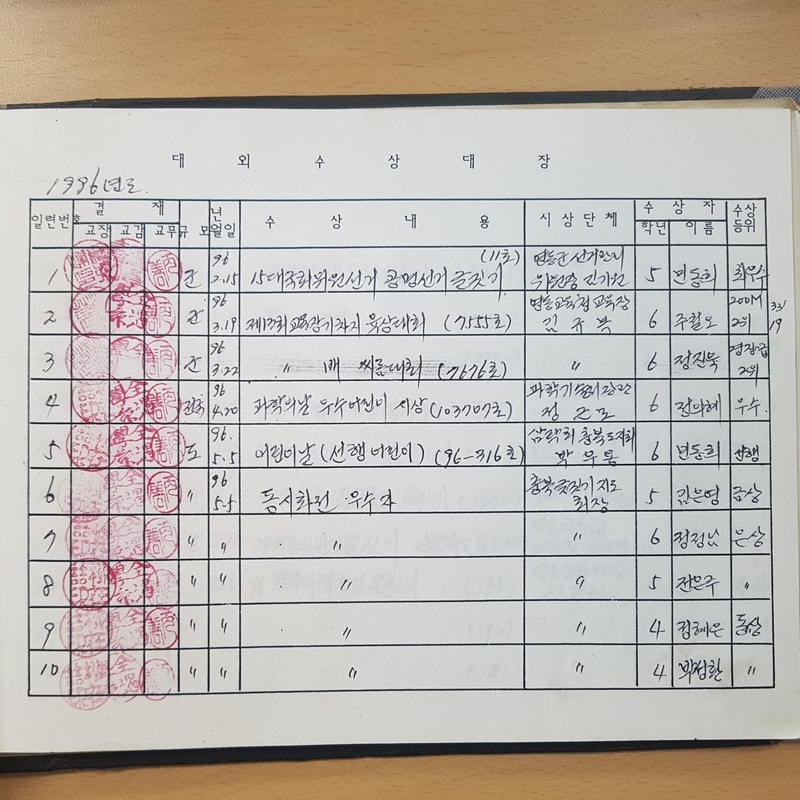 대 외 수 상 대 장
1996년도.
일련번호 결 재 규모 년월일 수 상 내 용 시 상 단 체 수 상 자 수상등위
교장 교감 교무 학년 이름
1 군 96 2.15 15대국회위원선거 공명선거 글짓기 (11호) 영동군 선거관리 위원회 5 민동희 최우수
2 군 96 3.19 제17회교육장기차지 육상대회 (7555호) 영동교육청 교육장 6 200M 2위
3 군 96 3.22 〃 배 씨름대회 (7676호) 〃 6 정진욱 2위
4 전국 96 4.20 과학의날 우수어린이 시상 (103707호) 과학기술처장관 정근모 6 전의혜 우수.
5 도 96. 5.5 어린이날 (선행어린이) (96-316호) 삼락회 충북도지회 6 민동희 선행
6 〃 96 5.5 동시화전 우수자 충북글짓기지도회장 5 김은영 금상
7 〃 〃 〃 〃 6 은상
8 〃 〃 〃 〃 5 전은주 〃
9 〃 〃 〃 〃 4 정혜은 동상
10 〃 〃 〃 〃 4 〃